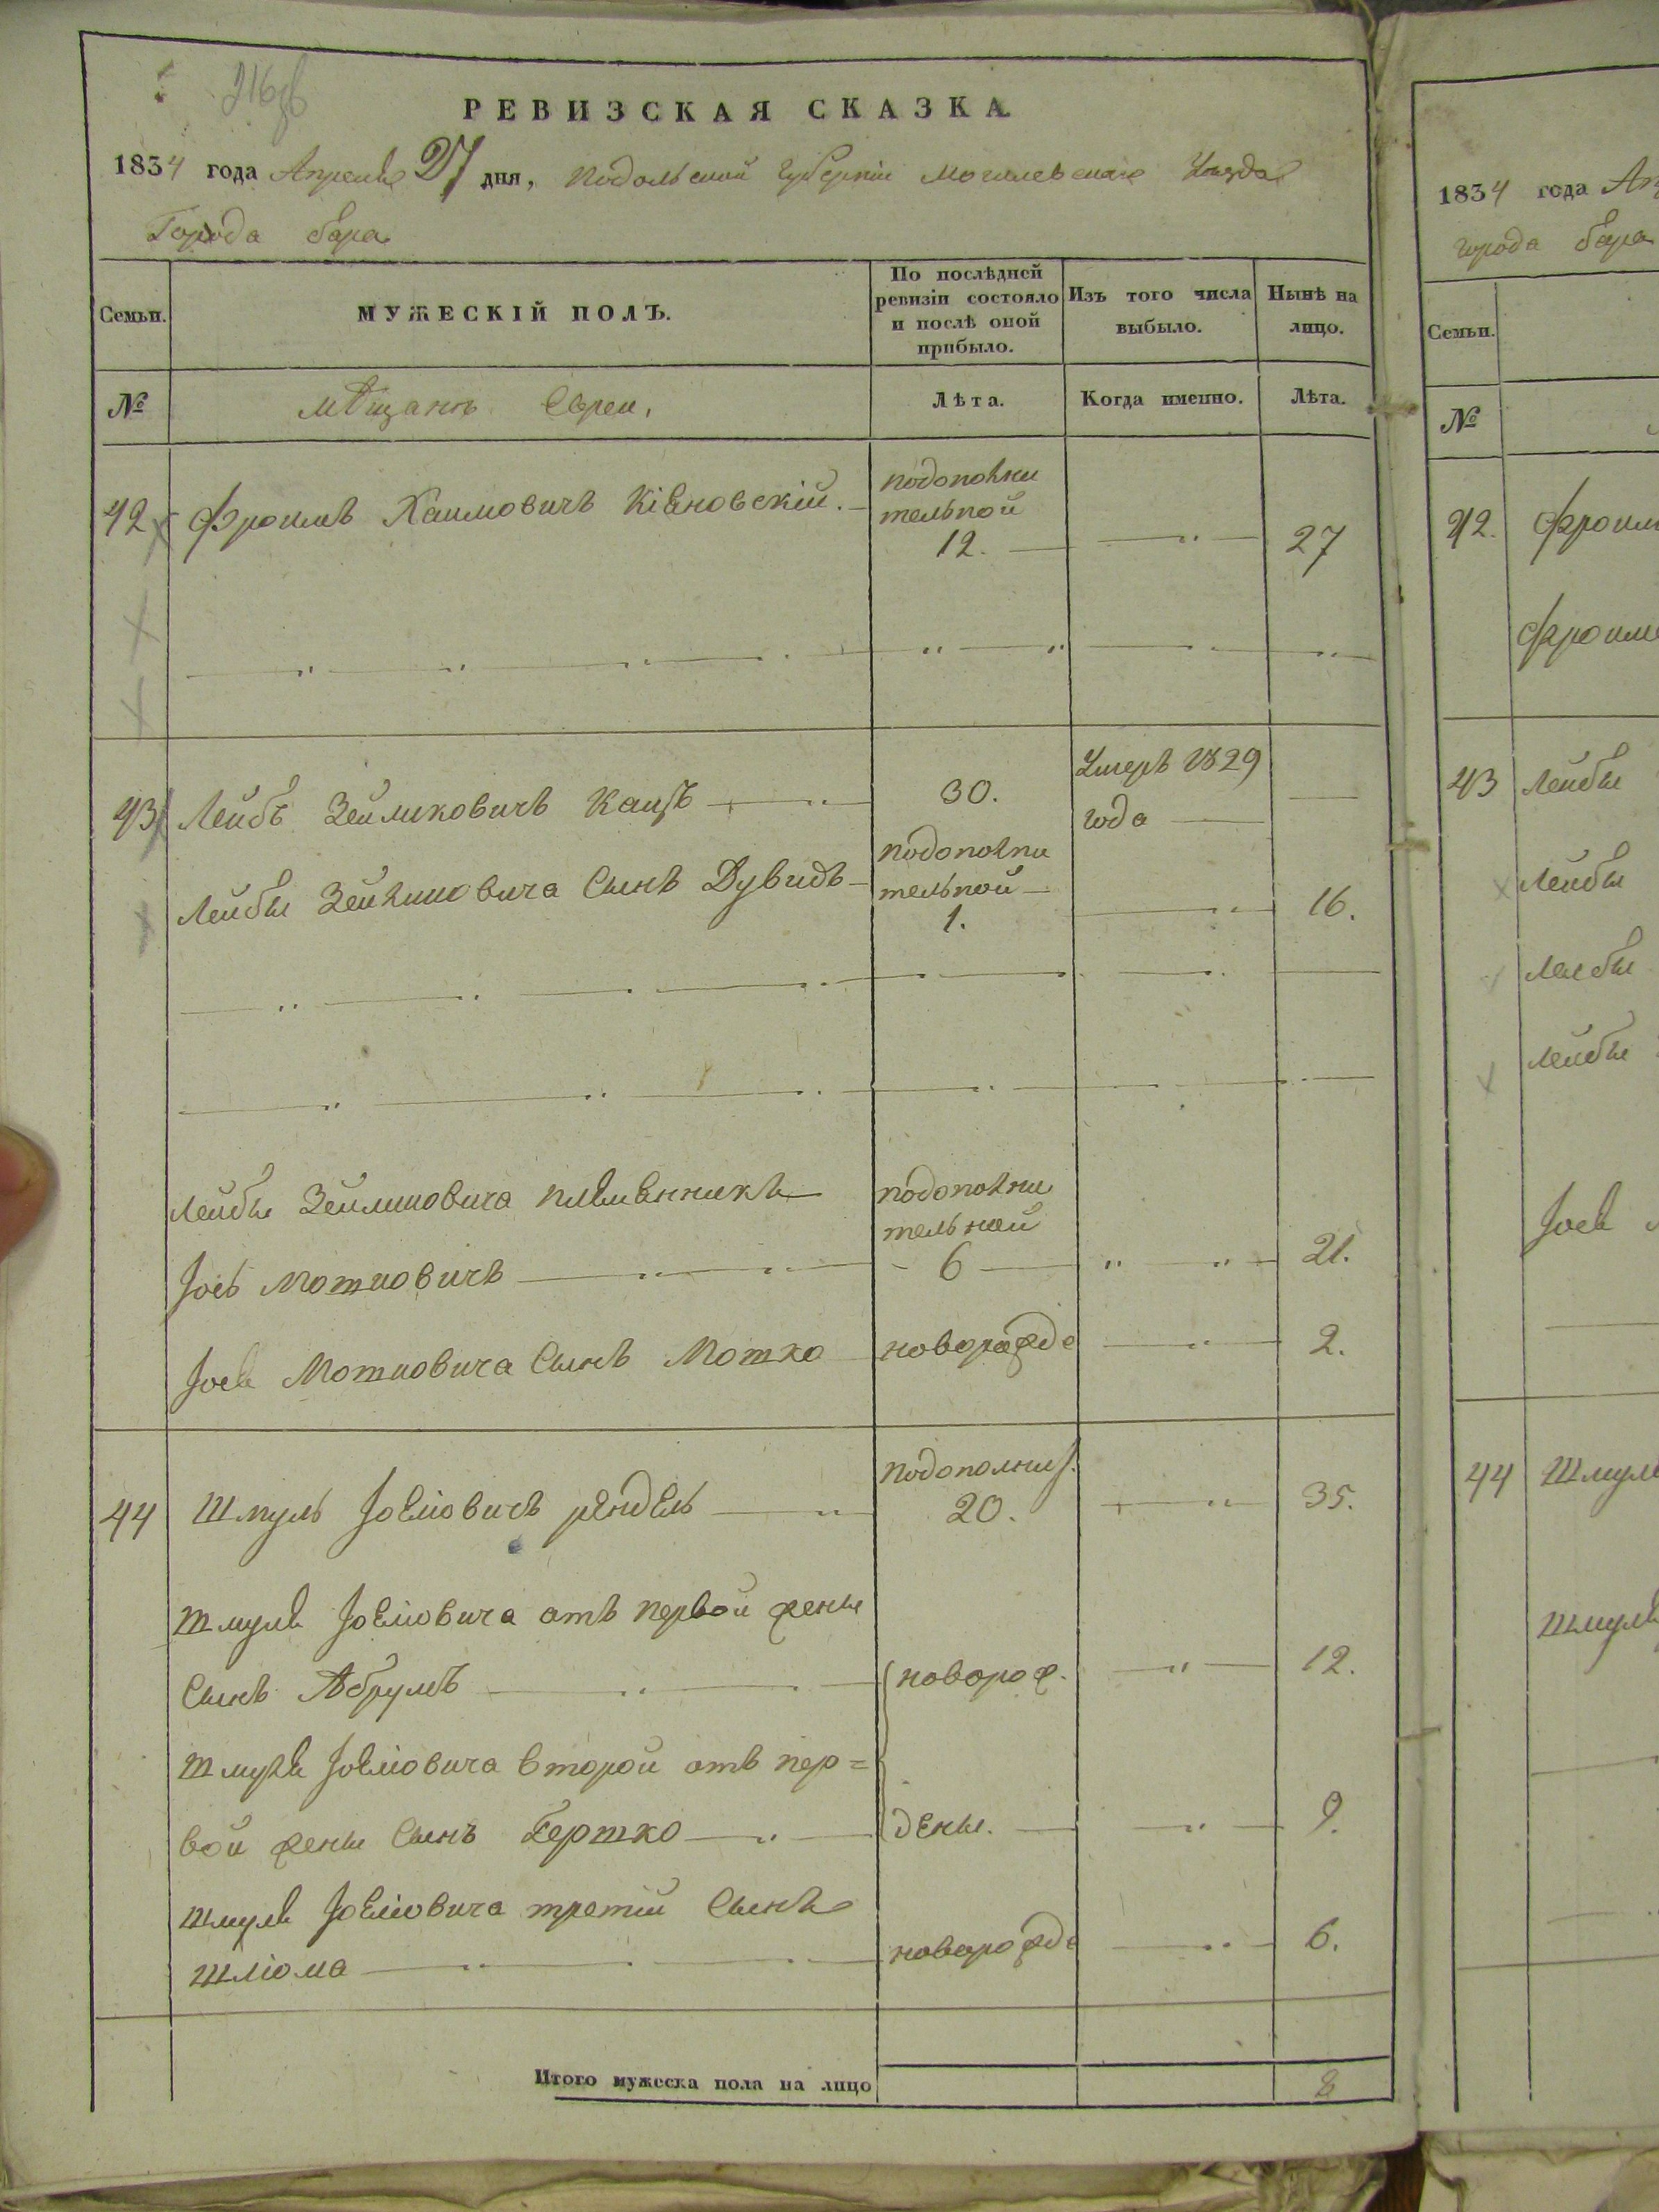 РЕВИЗСКАЯ СКАЗКА
1834 года Апреля 27 дня, Подольской Губерніи Могилевскаго Уезда
Города Бара
Семьи.
МУЖЕСКІЙ ПОЛЪ.
По послѣдней ревизіи состояло и послѣ оной прибыло.
Изъ того числа выбыло.
Нынѣ на лицо.
№
мѣщанъ Евреи,
Лѣта.
Когда именно.
Лѣта.
42 Фроимъ Хаимовичъ Кіяновскій.
подополни
тельной
12.
27
43 Лейбъ Зейликовичъ Кацъ
30.
Умеръ 1829
года
Лейбы Зейликовича Сынъ Дувидъ
подополни
тельной
1.
16.
Лейбы Зейликовича племянникъ
подополни
тельной
Іосъ Мотковичъ
6
21.
Іося Мотковича Сынъ Мотко
новорожде
2.
44 Шмуль Іоеліовичъ рендель
подополнит.
20.
35.
Шмуля Іоеліовича отъ первой жены
Сынъ Абрумъ
новорож.
12.
Шмуля Іоеліовича второй отъ пер=
вой жены Сынъ Гершко
дены.
9.
Шмуля Іоеліовича третій Сынъ
Шліома
новорожде
6.
Итого мужеска пола на лицо
8
1834 года Ап
города Бара
Семьи.
№
42. Фроим
Фроим
43 Лейбы
Лейбы
Лейбы
Лейбы
Іося
44 Шмуля
Шмуля